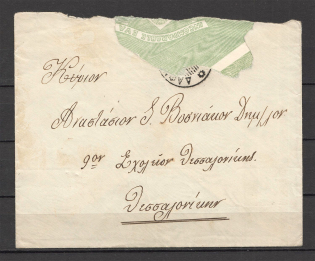 Κύριον
Αναστάσιον Ι. Βοσνιάκον Δημ/λον
9ον Σχολεῖον Θεσσαλονίκης.
Θεσσαλονίκην